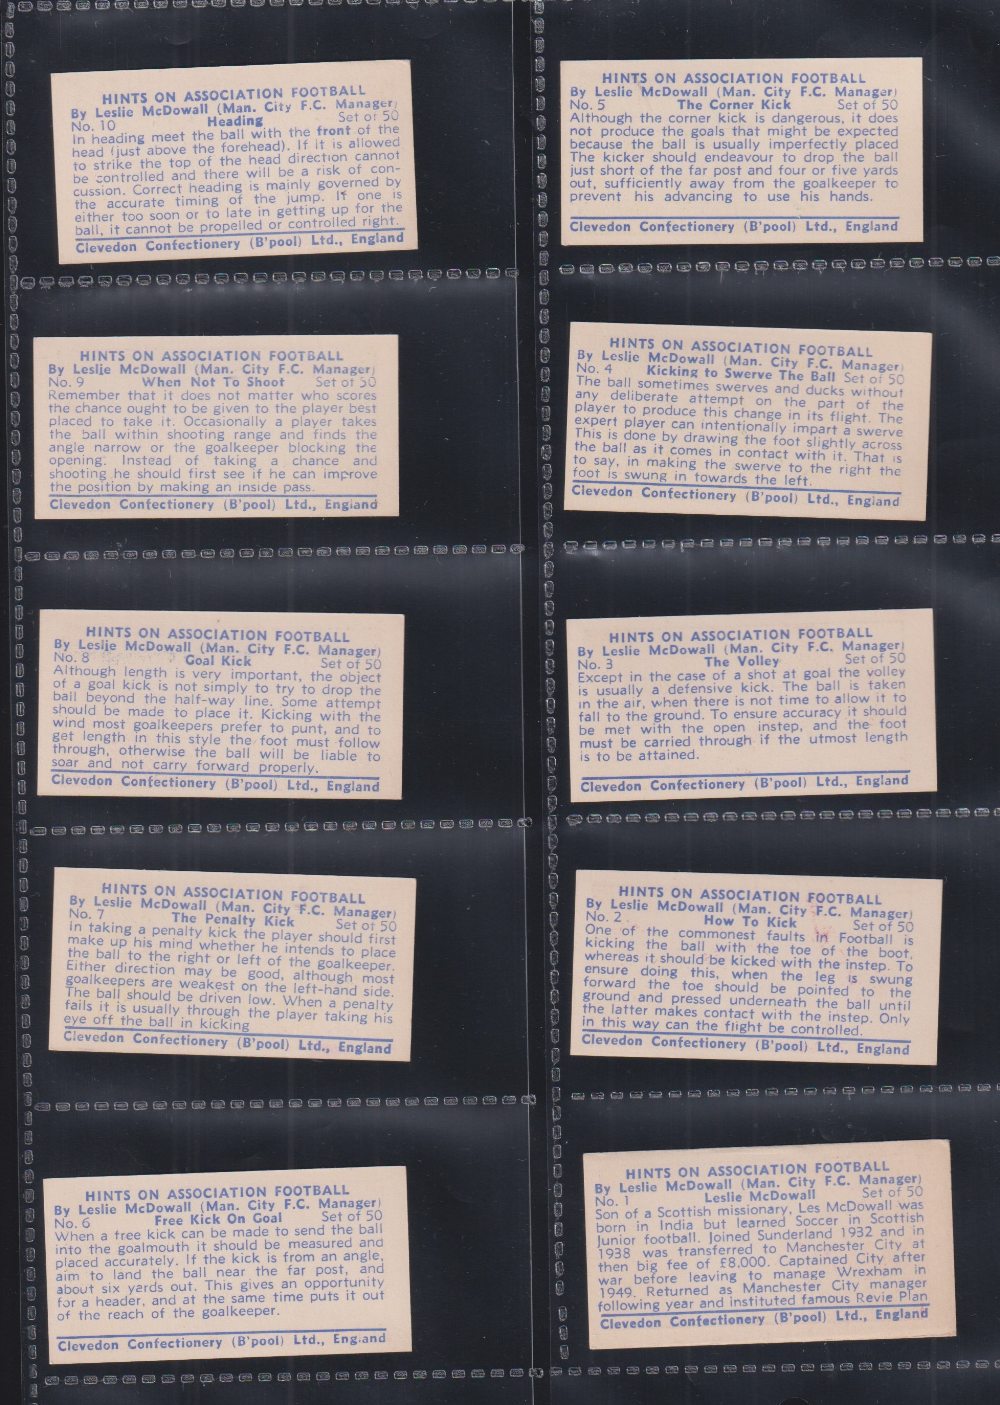 HINTS ON ASSOCIATION FOOTBALL
By Leslie McDowall (Man. City F.C. Manager)
No. 10 Heading Set of 50
In heading meet the ball with the front of the
head (just above the forehead). If it is allowed
to strike the top of the head direction cannot
be controlled and there will be a risk of con-
cussion. Correct heading is mainly governed by
the accurate timing of the jump. If one is
either too soon or to late in getting up for the
ball, it cannot be propelled or controlled right.
Clevedon Confectionery (B'pool) Ltd., England
HINTS ON ASSOCIATION FOOTBALL
By Leslie McDowall (Man. City F.C. Manager)
No. 5 The Corner Kick Set of 50
Although the corner kick is dangerous, it does
not produce the goals that might be expected
because the ball is usually imperfectly placed
The kicker should endeavour to drop the ball
just short of the far post and four or five yards
out, sufficiently away from the goalkeeper to
prevent his advancing to use his hands.
Clevedon Confectionery (B'pool) Ltd., England
HINTS ON ASSOCIATION FOOTBALL
By Leslie McDowall (Man. City F.C. Manager)
No. 9 When Not To Shoot Set of 50
Remember that it does not matter who scores
the chance ought to be given to the player best
placed to take it. Occasionally a player takes
the ball within shooting range and finds the
angle narrow or the goalkeeper blocking the
opening. Instead of taking a chance and
shooting he should first see if he can improve
the position by making an inside pass.
Clevedon Confectionery (B'pool) Ltd., England
HINTS ON ASSOCIATION FOOTBALL
By Leslie McDowall (Man. City F.C. Manager)
No. 4 Kicking to Swerve The Ball Set of 50
The ball sometimes swerves and ducks without
any deliberate attempt on the part of the
player to produce this change in its flight. The
expert player can intentionally impart a swerve
This is done by drawing the foot slightly across
the ball as it comes in contact with it. That is
to say, in making the swerve to the right the
foot is swung in towards the left.
Clevedon Confectionery (B'pool) Ltd., England
HINTS ON ASSOCIATION FOOTBALL
By Leslie McDowall (Man. City F.C. Manager)
No. 8 Goal Kick Set of 50
Although length is very important, the object
of a goal kick is not simply to try to drop the
ball beyond the half-way line. Some attempt
should be made to place it. Kicking with the
wind most goalkeepers prefer to punt, and to
get length in this style the foot must follow
through, otherwise the ball will be liable to
soar and not carry forward properly.
Clevedon Confectionery (B'pool) Ltd., England
HINTS ON ASSOCIATION FOOTBALL
By Leslie McDowall (Man. City F.C. Manager)
No. 3 The Volley Set of 50
Except in the case of a shot at goal the volley
is usually a defensive kick. The ball is taken
in the air, when there is not time to allow it to
fall to the ground. To ensure accuracy it should
be met with the open instep, and the foot
must be carried through if the utmost length
is to be attained.
Clevedon Confectionery (B'pool) Ltd., England
HINTS ON ASSOCIATION FOOTBALL
By Leslie McDowall (Man. City F.C. Manager)
No. 7 The Penalty Kick Set of 50
In taking a penalty kick the player should first
make up his mind whether he intends to place
the ball to the right or left of the goalkeeper.
Either direction may be good, although most
goalkeepers are weakest on the left-hand side.
The ball should be driven low. When a penalty
fails it is usually through the player taking his
eye off the ball in kicking
Clevedon Confectionery (B'pool) Ltd., England
HINTS ON ASSOCIATION FOOTBALL
By Leslie McDowall (Man. City F.C. Manager)
No. 2 How To Kick Set of 50
One of the commonest faults in Football is
kicking the ball with the toe of the boot,
whereas it should be kicked with the instep. To
ensure doing this, when the leg is swung
forward the toe should be pointed to the
ground and pressed underneath the ball until
the latter makes contact with the instep. Only
in this way can the flight be controlled.
Clevedon Confectionery (B'pool) Ltd., England
HINTS ON ASSOCIATION FOOTBALL
By Leslie McDowall (Man. City F.C. Manager)
No. 6 Free Kick On Goal Set of 50
When a free kick can be made to send the ball
into the goalmouth it should be measured and
placed accurately. If the kick is from an angle,
aim to land the ball near the far post, and
about six yards out. This gives an opportunity
for a header, and at the same time puts it out
of the reach of the goalkeeper.
Clevedon Confectionery (B'pool) Ltd., England
HINTS ON ASSOCIATION FOOTBALL
By Leslie McDowall (Man. City F.C. Manager)
No. 1 Leslie McDowall Set of 50
Son of a Scottish missionary, Les McDowall was
born in India but learned Soccer in Scottish
Junior football. Joined Sunderland 1932 and in
1938 was transferred to Manchester City at
then big fee of £8,000. Captained City after
war before leaving to manage Wrexham in
1949. Returned as Manchester City manager
following year and instituted famous Revie Plan
Clevedon Confectionery (B'pool) Ltd., England